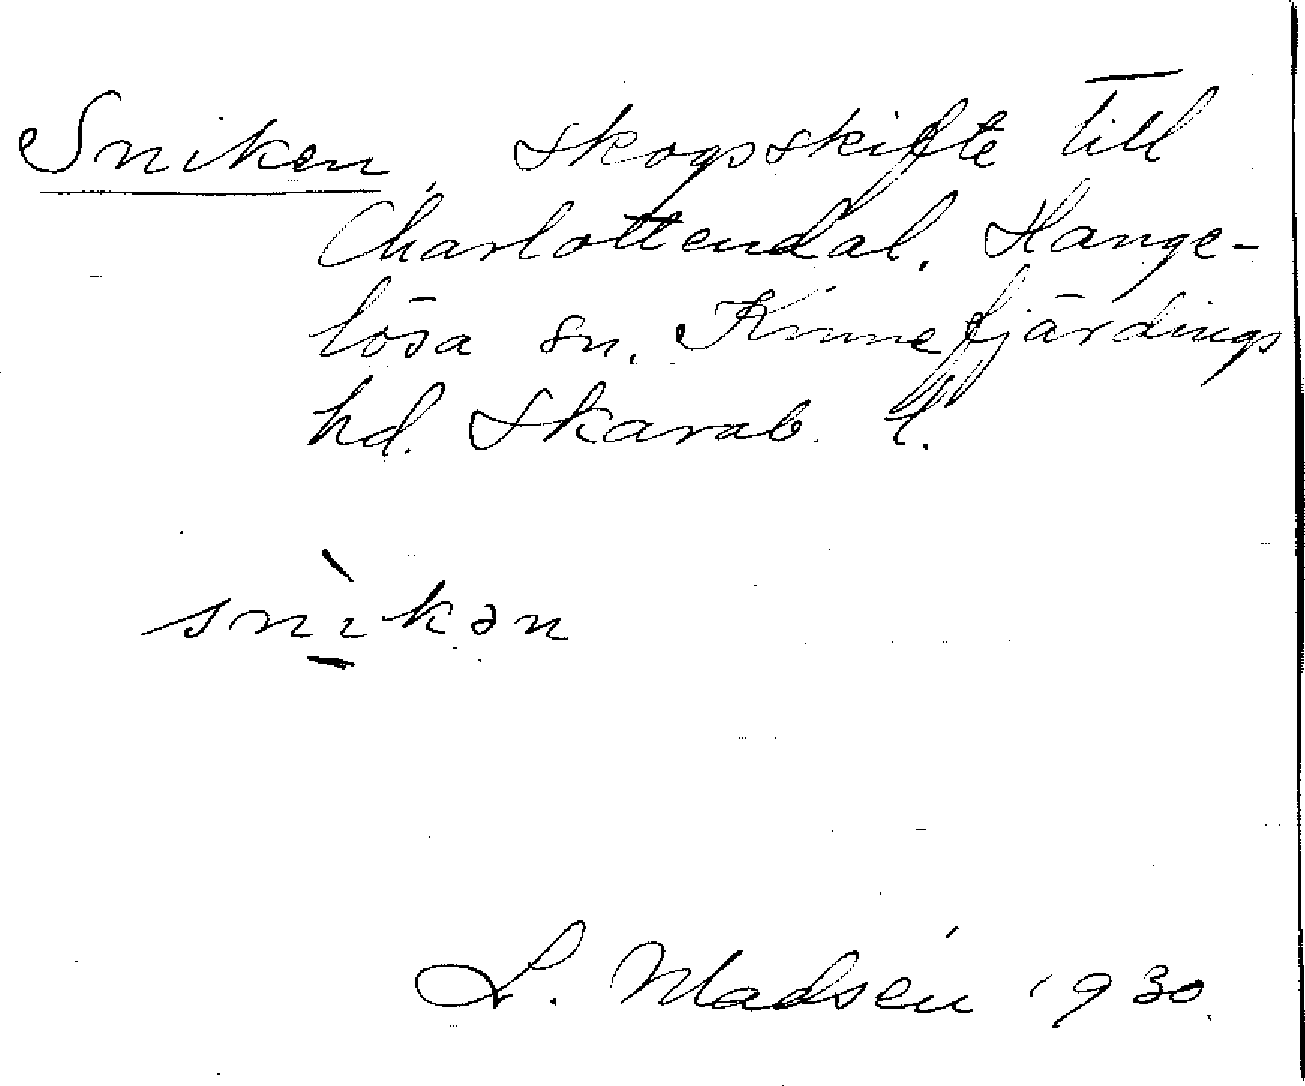 Sniken, skogsskifte till
Charlottendal. Hange-
lösa sn. Kinnefjärdings
hd. Skarab. l.
snìkən
L. Madsén 1930.